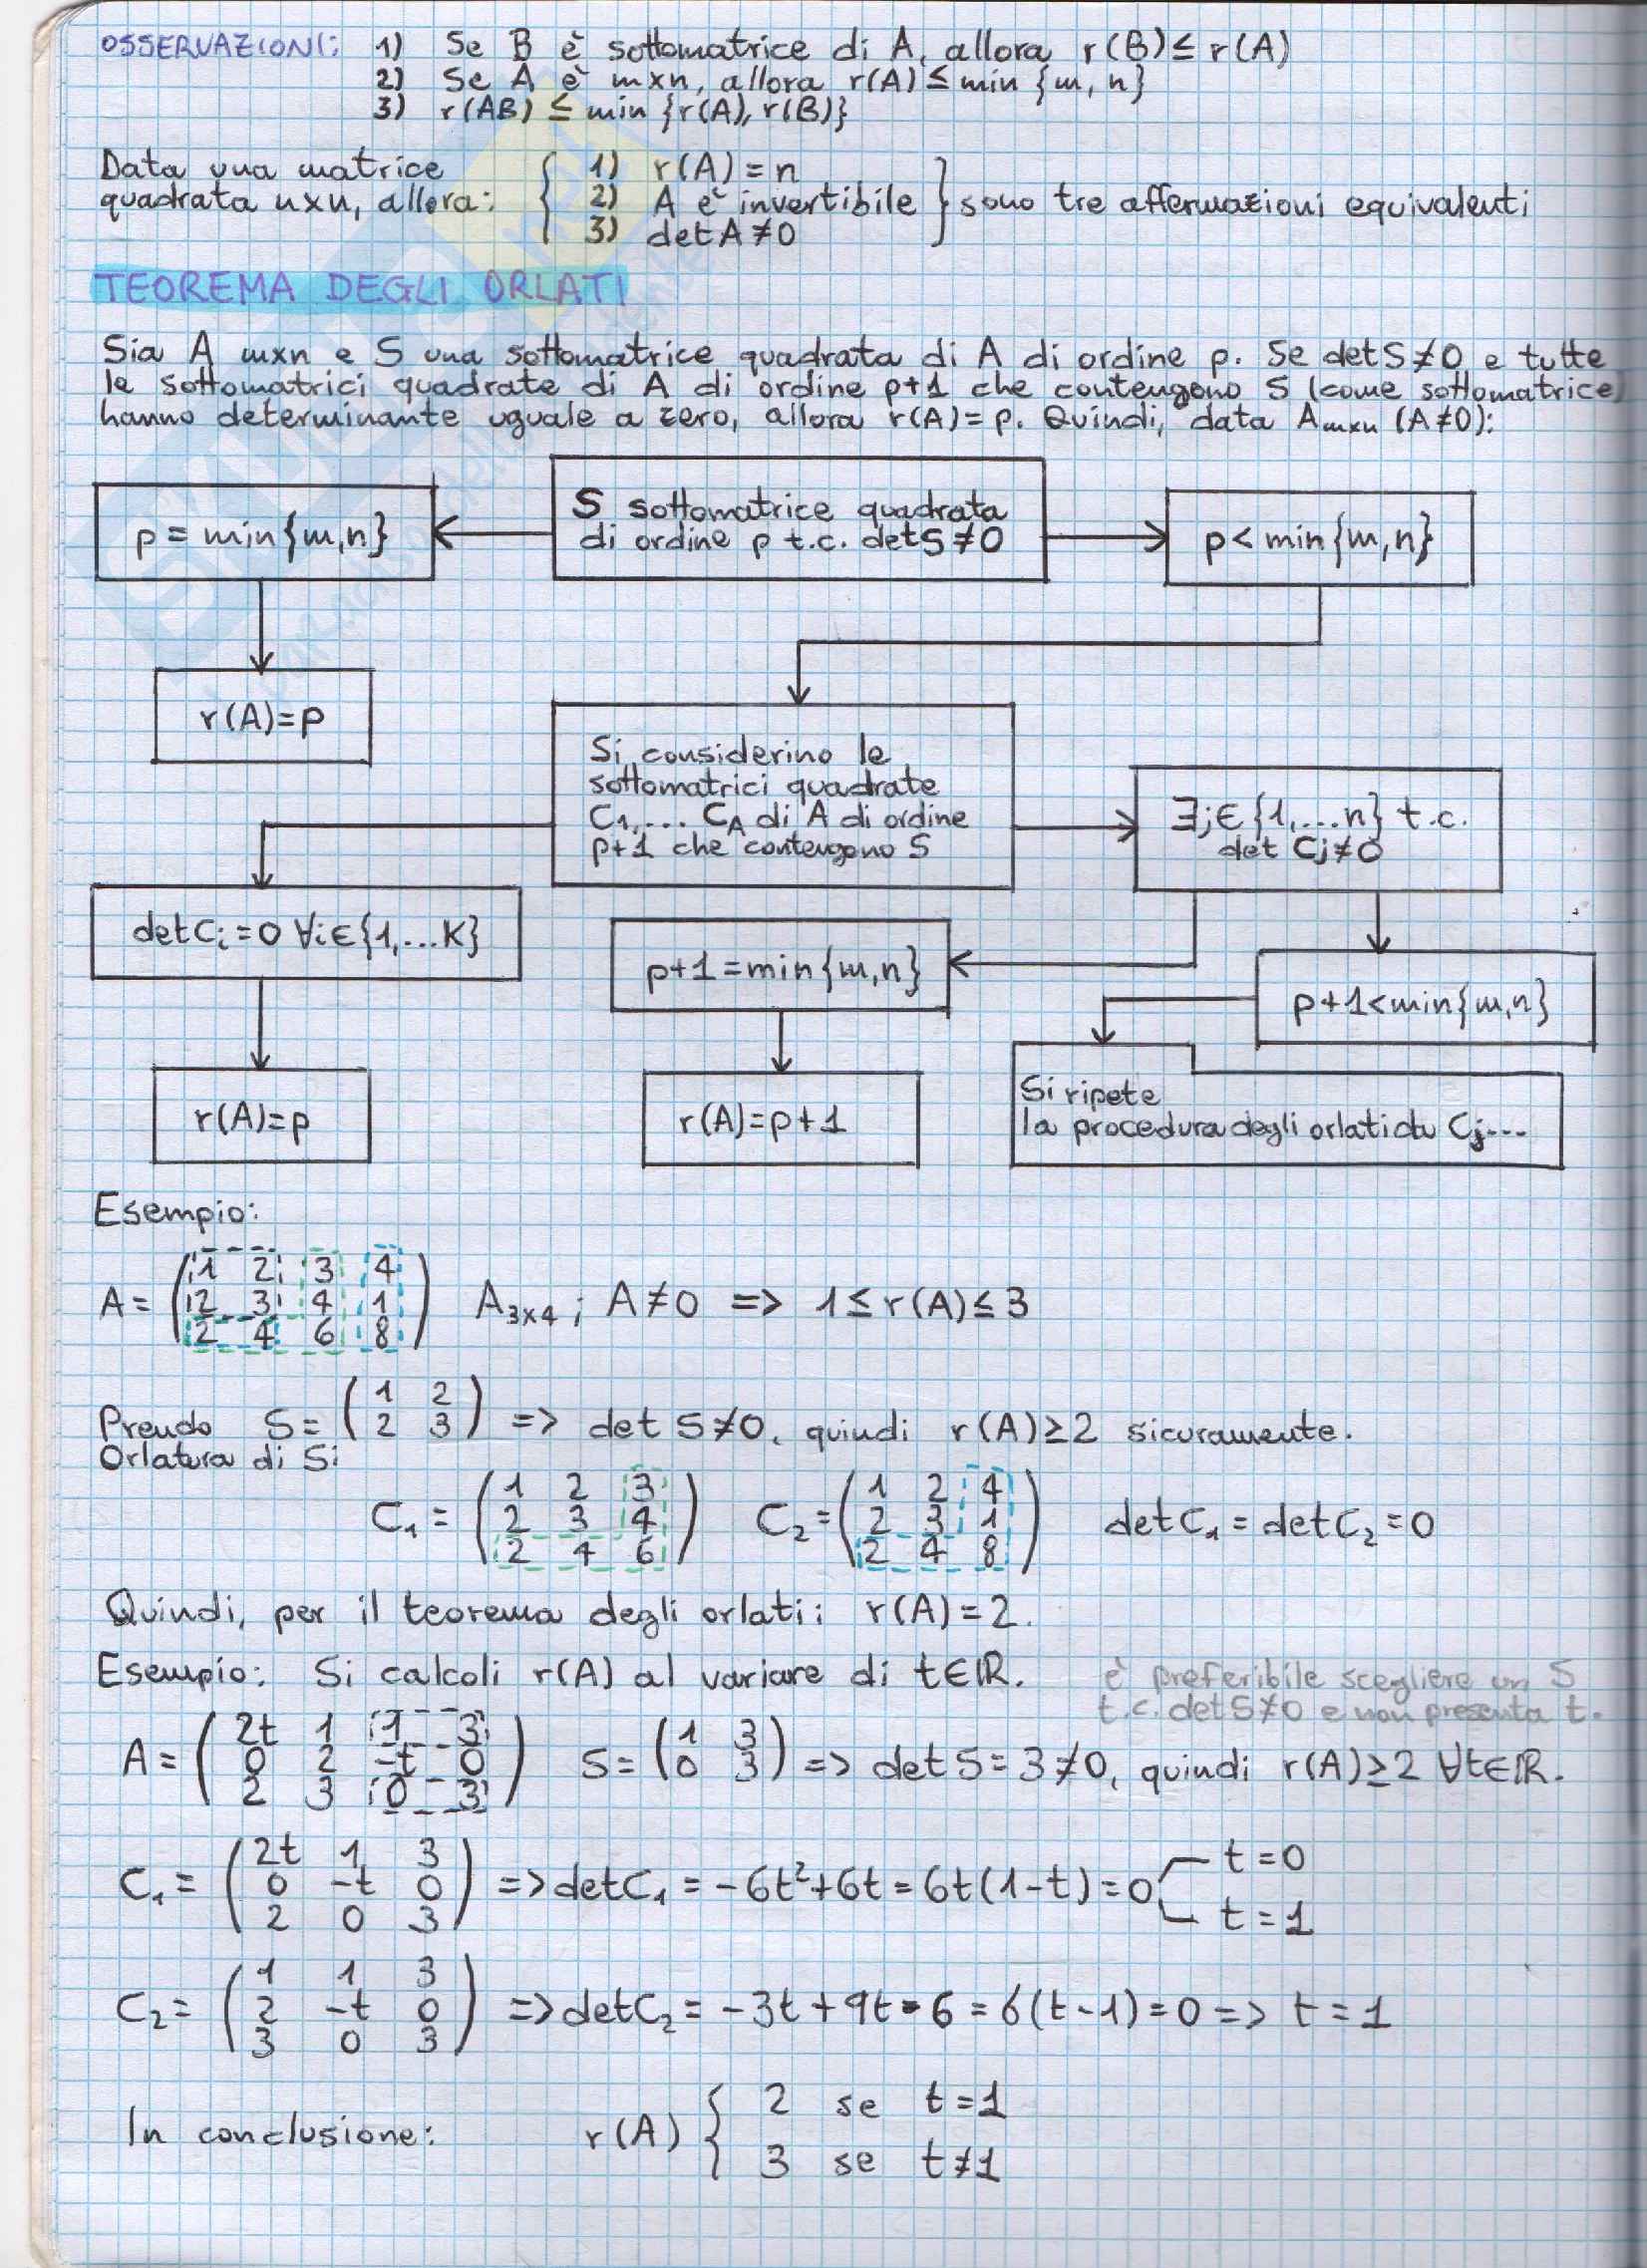 OSSERVAZIONI: 1) Se B è sottomatrice di A, allora r(B) ≤ r(A)
2) Se A è m×n, allora r(A) ≤ min {m, n}
3) r(AB) ≤ min {r(A), r(B)}
Data una matrice
quadrata n×n, allora:
1) r(A) = n
2) A è invertibile
3) det A ≠ 0
sono tre affermazioni equivalenti
TEOREMA DEGLI ORLATI
Sia A m×n e S una sottomatrice quadrata di A di ordine p. Se det S ≠ 0 e tutte
le sottomatrici quadrate di A di ordine p+1 che contengono S (come sottomatrice)
hanno determinante uguale a zero, allora r(A) = p. Quindi, data Amxn (A≠0):
p = min{m,n}
S sottomatrice quadrata
di ordine p t.c. det S ≠ 0
p < min{m,n}
r(A)=p
Si considerino le
sottomatrici quadrate
C1,... CA di A di ordine
p+1 che contengono S
∃j∈{1,...n} t.c.
det Cj≠0
det Ci = 0 ∀i∈{1,...K}
p+1 = min{m,n}
p+1<min{m,n}
r(A)=p
r(A)=p+1
Si ripete
la procedura degli orlati du Cj...
Esempio:
1 2 3 4
A = 2 3 4 1 A3x4 ; A≠0 => 1 ≤ r(A) ≤ 3
2 4 6 8
Prendo S = (1 2
2 3) => det S ≠ 0, quindi r(A) ≥ 2 sicuramente.
Orlatura di S:
1 2 3 1 2 4
C1 = 2 3 4 C2 = 2 3 1 det C1 = det C2 = 0
2 4 6 2 4 8
Quindi, per il teorema degli orlati: r(A) = 2.
Esempio: Si calcoli r(A) al variare di t∈ℝ.
è preferibile scegliere un S
t.c. det S≠0 e non presenta t.
2t 1 1 3
A = 0 2 -t 0
2 3 0 3
S = (1 3
0 3) => det S = 3 ≠ 0, quindi r(A) ≥ 2 ∀t∈ℝ.
2t 1 3
C1 = 0 -t 0 => det C1 = -6t²+6t = 6t(1-t) = 0
2 0 3
t = 0
t = 1
1 1 3
C2 = 2 -t 0 => det C2 = -3t + 9t - 6 = 6(t-1) = 0 => t = 1
3 0 3
In conclusione: r(A) {
2 se t = 1
3 se t ≠ 1